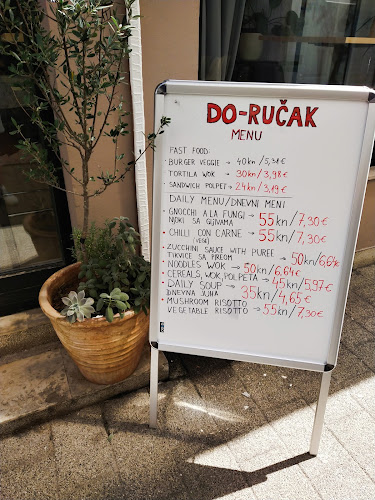 DO-RUČAK
MENU
FAST FOOD
• BURGER VEGGIE → 40kn/5,31€
• TORTILA WOK → 30kn/3,98€
• SANDWICH POLPET → 24kn/3,19€
DAILY MENU/DNEVNI MENI
• GNOCCHI A LA FUNGI → 55kn/7,30€
NJOKI SA GLJIVAMA
• CHILLI CON CARNE → 55kn/7,30€
(VEGE)
• ZUCCHINI SAUCE WITH PUREE → 50kn/6,64
TIKVICE SA PIREOM
• NOODLES WOK → 50kn/6,64€
• CEREALS, WOK, POLPETA → 45kn/5,97€
• DAILY SOUP → 35kn/4,65€
DNEVNA JUHA
• MUSHROOM RISOTTO
VEGETABLE RISOTTO → 55kn/7,30€